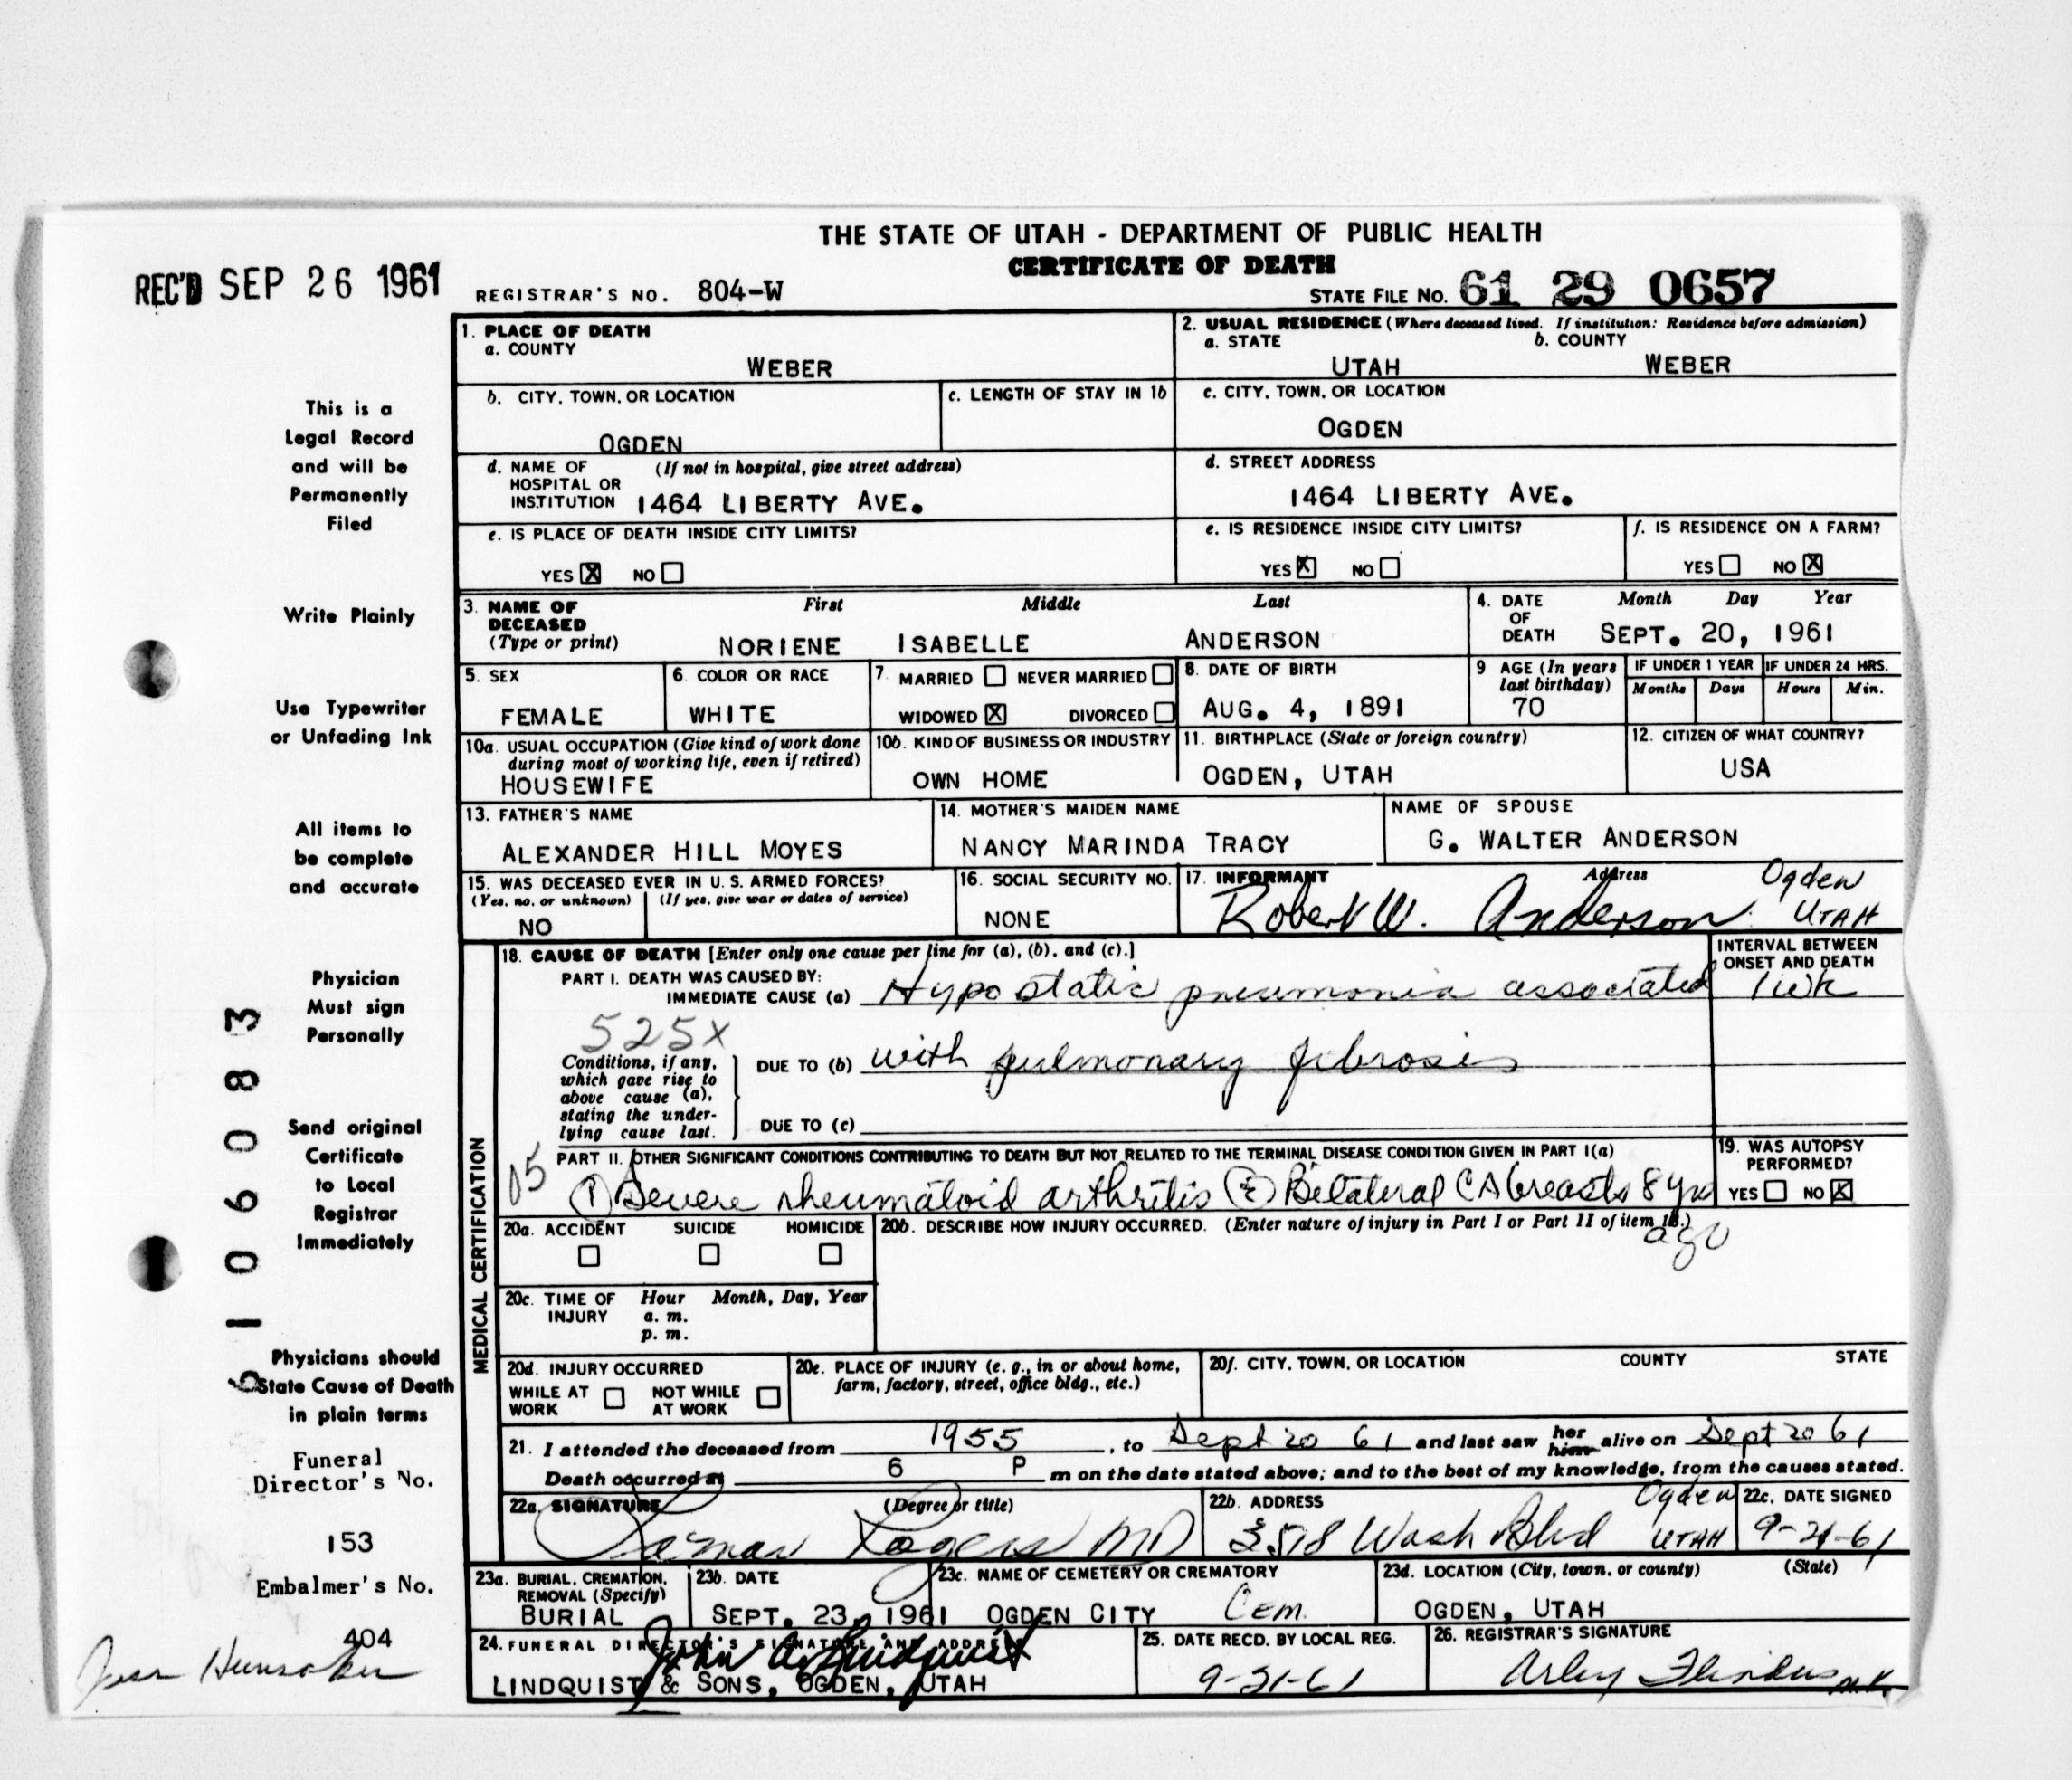 THE STATE OF UTAH - DEPARTMENT OF PUBLIC HEALTH
CERTIFICATE OF DEATH
REC'D SEP 26 1961
REGISTRAR'S NO. 804-W
STATE FILE NO. 61 29 0657
1. PLACE OF DEATH
a. COUNTY
WEBER
2. USUAL RESIDENCE (Where deceased lived. If institution: Residence before admission)
a. STATE b. COUNTY
UTAH WEBER
b. CITY, TOWN, OR LOCATION
OGDEN
c. LENGTH OF STAY IN 1b
c. CITY, TOWN, OR LOCATION
OGDEN
d. NAME OF (If not in hospital, give street address)
HOSPITAL OR
INSTITUTION 1464 LIBERTY AVE.
d. STREET ADDRESS
1464 LIBERTY AVE.
e. IS PLACE OF DEATH INSIDE CITY LIMITS?
YES X NO
e. IS RESIDENCE INSIDE CITY LIMITS?
YES X NO
f. IS RESIDENCE ON A FARM?
YES NO X
3. NAME OF First Middle Last
DECEASED
(Type or print) NORIENE ISABELLE ANDERSON
4. DATE Month Day Year
OF
DEATH SEPT. 20, 1961
5. SEX
FEMALE
6. COLOR OR RACE
WHITE
7. MARRIED NEVER MARRIED
WIDOWED X DIVORCED
8. DATE OF BIRTH
AUG. 4, 1891
9 AGE (In years
last birthday)
70
IF UNDER 1 YEAR
Months Days
IF UNDER 24 HRS.
Hours Min.
10a. USUAL OCCUPATION (Give kind of work done
during most of working life, even if retired)
HOUSEWIFE
10b. KIND OF BUSINESS OR INDUSTRY
OWN HOME
11. BIRTHPLACE (State or foreign country)
OGDEN, UTAH
12. CITIZEN OF WHAT COUNTRY?
USA
13. FATHER'S NAME
ALEXANDER HILL MOYES
14. MOTHER'S MAIDEN NAME
NANCY MARINDA TRACY
NAME OF SPOUSE
G. WALTER ANDERSON
15. WAS DECEASED EVER IN U. S. ARMED FORCES?
(Yes, no, or unknown) (If yes, give war or dates of service)
NO
16. SOCIAL SECURITY NO.
NONE
17. INFORMANT Address
Robert W. Anderson Ogden
UTAH
MEDICAL CERTIFICATION
18. CAUSE OF DEATH [Enter only one cause per line for (a), (b), and (c).]
INTERVAL BETWEEN
ONSET AND DEATH
PART I. DEATH WAS CAUSED BY:
IMMEDIATE CAUSE (a) Hypostatic pneumonia associated 1 wk
525X
Conditions, if any,
which gave rise to
above cause (a),
stating the under-
lying cause last.
DUE TO (b) with pulmonary fibrosis
DUE TO (c)
05
PART II. OTHER SIGNIFICANT CONDITIONS CONTRIBUTING TO DEATH BUT NOT RELATED TO THE TERMINAL DISEASE CONDITION GIVEN IN PART I(a)
(1) Severe rheumatoid arthritis (2) Bilateral CA breasts 8 yrs
ago
19. WAS AUTOPSY
PERFORMED?
YES NO X
20a. ACCIDENT SUICIDE HOMICIDE
20b. DESCRIBE HOW INJURY OCCURRED. (Enter nature of injury in Part I or Part II of item 18.)
20c. TIME OF Hour Month, Day, Year
INJURY a. m.
p. m.
20d. INJURY OCCURRED
WHILE AT NOT WHILE
WORK AT WORK
20e. PLACE OF INJURY (e. g., in or about home,
farm, factory, street, office bldg., etc.)
20f. CITY, TOWN, OR LOCATION COUNTY STATE
21. I attended the deceased from 1955, to Sept 20 61 and last saw her him alive on Sept 20 61
Death occurred at 6 P m on the date stated above; and to the best of my knowledge, from the causes stated.
22a. SIGNATURE (Degree or title)
Lamar Rogers MD
22b. ADDRESS
3518 Wash Blvd Ogden
UTAH
22c. DATE SIGNED
9-21-61
23a. BURIAL, CREMATION,
REMOVAL (Specify)
BURIAL
23b. DATE
SEPT. 23, 1961
23c. NAME OF CEMETERY OR CREMATORY
OGDEN CITY Cem.
23d. LOCATION (City, town, or county) (State)
OGDEN, UTAH
24. FUNERAL DIRECTOR'S SIGNATURE AND ADDRESS
John A Lindquist
LINDQUIST & SONS, OGDEN, UTAH
25. DATE RECD. BY LOCAL REG.
9-21-61
26. REGISTRAR'S SIGNATURE
Arley Flinders
This is a
Legal Record
and will be
Permanently
Filed
Write Plainly
Use Typewriter
or Unfading Ink
All items to
be complete
and accurate
Physician
Must sign
Personally
Send original
Certificate
to Local
Registrar
Immediately
Physicians should
State Cause of Death
in plain terms
Funeral
Director's No.
153
Embalmer's No.
404
6106083